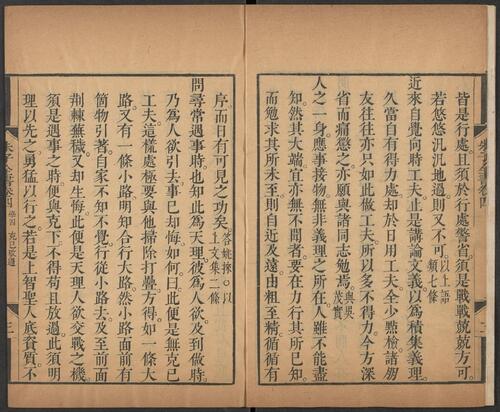 皆是行處。且須於行處警省。須是戰戰兢兢方可。
若悠悠汎汎地過則又不可。以上語類七條
近來自覺向時工夫止是講論文義以爲積集義理。
久當自有得力處却於日用工夫全少點檢。諸朋
友往往亦只如此做工夫所以多不得力。今方深
省而痛懲之。亦願與諸同志勉焉。與吳茂實
人之一身應事接物無非義理之所在。人雖不能盡
知。然其大端宜亦無不聞者。要在力行其所已知
而勉求其所未至。則自近及遠。由粗至精。循循有
序而日有可見之功矣。答姚掞○以上文集二條
問尋常遇事時也知此爲天理彼爲人欲。及到做時
乃爲人欲引去。事已却悔如何。曰此便是無克己
工夫。這樣處極要與他掃除打疊方得。如一條大
路又有一條小路。明知合行大路。然小路面前有
箇物引著。自家不知不覺行從小路去。及至前面
荆棘蕪穢。又却生悔。此便是天理人欲交戰之機。
須是遇事之時便與克下。不得苟且放過。此須明
理以先之。勇猛以行之。若是上智聖人底資質。不
克己改過
三